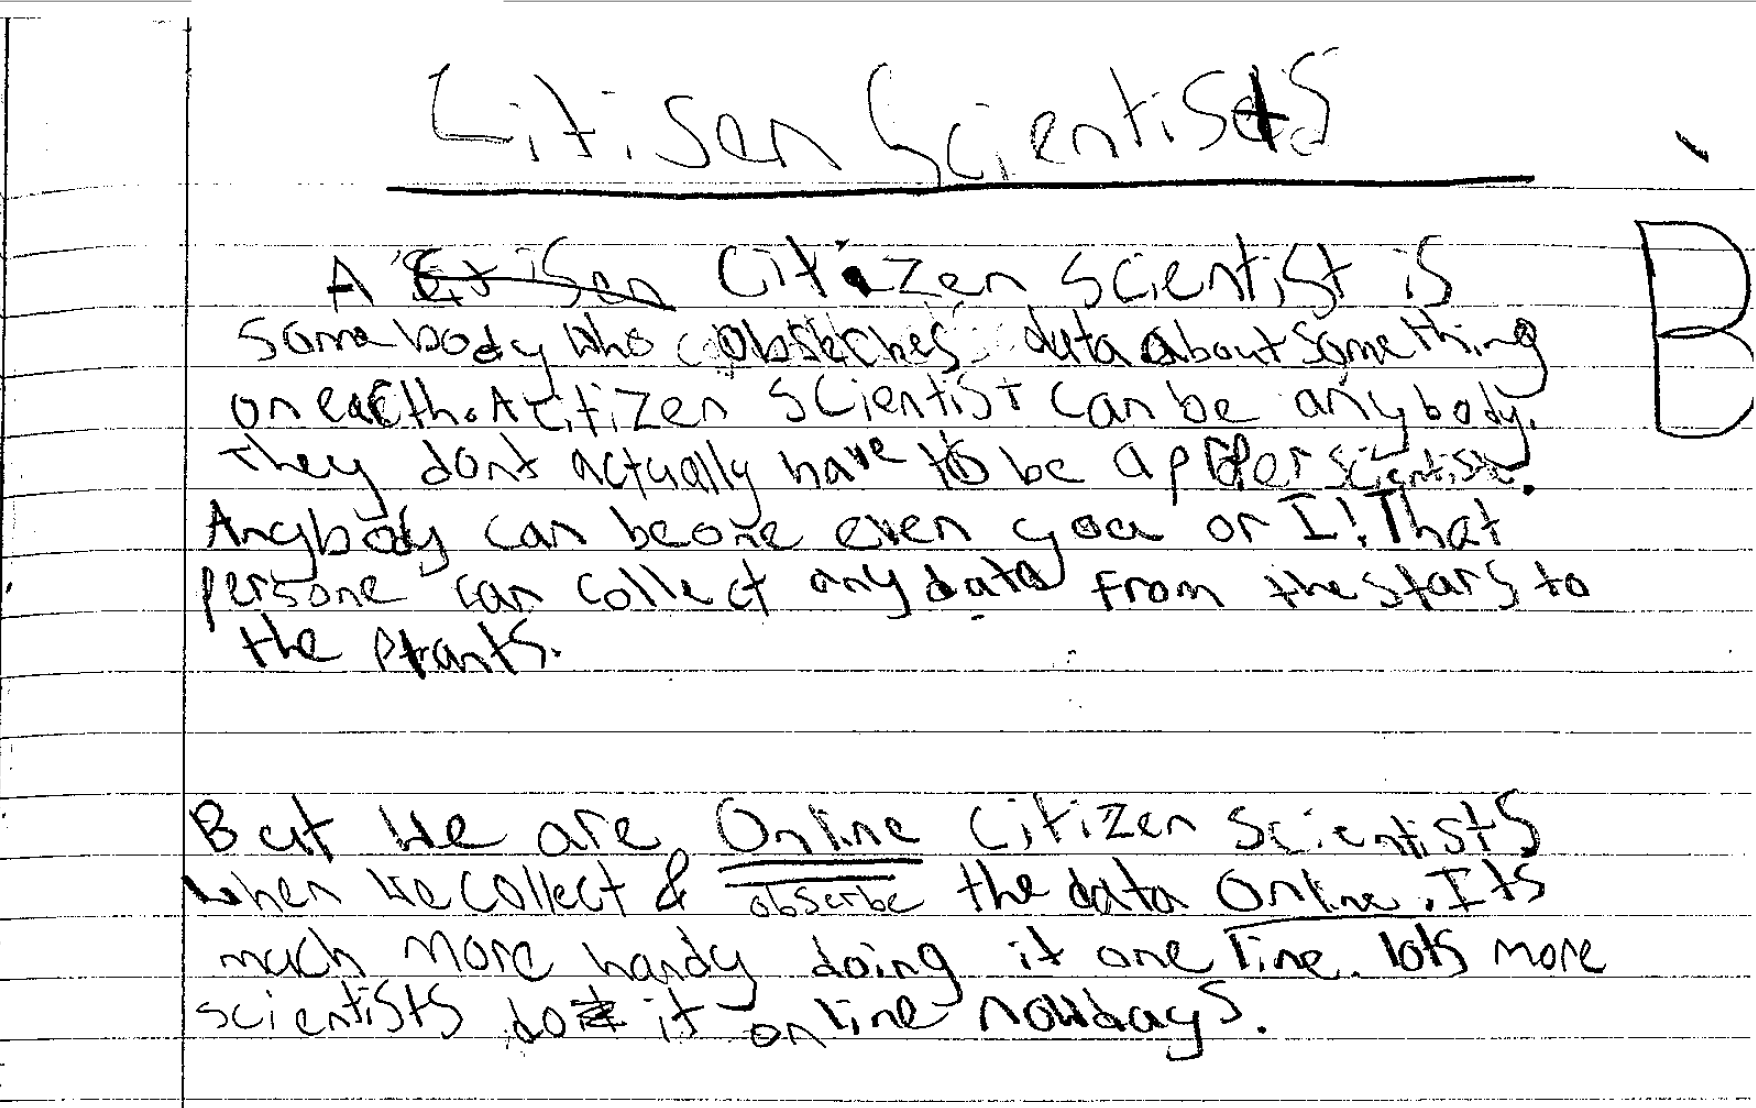 Citisen Scientists
A Citisen Citizen Scientist is
B
Somebody who data about something
on earth. A citizen scientist can be anybody.
They dont actually have to be a proper scientist.
Anybody can beone even you or I! That
persone can collect any data from the stars to
the Plants.
But we are Online Citizen Scientists
when we collect & observe the data Online. Its
much more handy doing it one line. lots more
scientists do it on line nowdays.